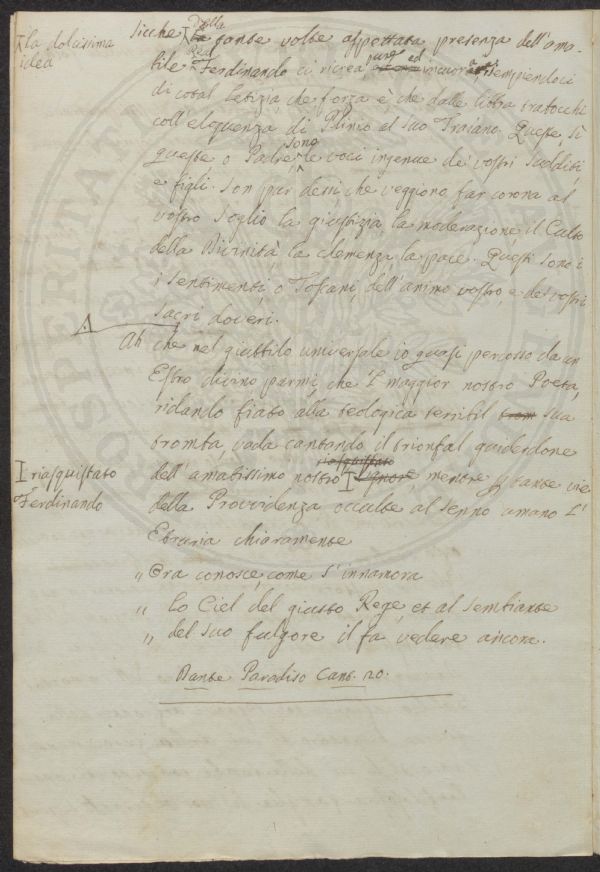 la dolcissima
idea
Della
Sicchè La tante volte aspettata presenza dell'ama-
bile Ferdinando ci ricrea, ed riempiendoci
di cotal letizia, che forza è che dalle libra trabocchi
coll'eloquenza di Plinio al suo Traiano. Queste, sì
sono
queste o Padre le voci ingenue de' vostri Sudditi,
e figli. Son pur dessi che veggiono far corona al
vostro Soglio la giustizia, la moderazione, il Culto
della Divinità, la clemenza, la pace. Questi sono i
i sentimenti, o Toscani, dell'animo vostro, e de' vostri
sacri doveri.
Ah che nel giubbilo universale io quasi percosso da un
Estro divino parmi, che l' maggior nostro Poeta,
ridando fiato alla teologica terribil trom sua
tromba, vada cantando il trionfal guiderdone
riasquistato
dell'amatissimo nostro Signore mentre p tante vie
riasquistato
Ferdinando
della Provvidenza occulte al senno umano l'
Etruria chiaramente
„ Ora conosce, come s'innamora
„ Lo Ciel del giusto Rege, et al sembiante
„ del suo fulgore il fa vedere ancora.
Dante Paradiso Cant. 20.